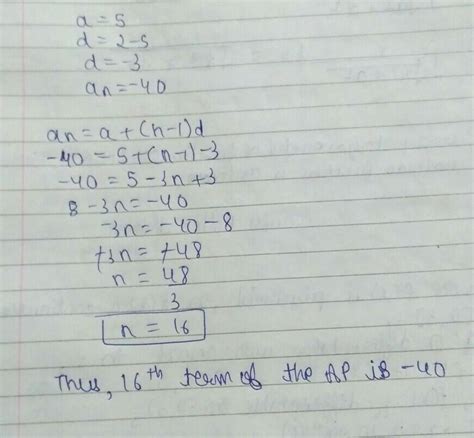 a = 5
d = 2-5
d = -3
an = -40
an = a + (n-1)d
-40 = 5+(n-1)-3
-40 = 5 -3n +3
8 -3n = -40
-3n = -40 -8
+3n = +48
n = 48
3
n = 16
Thus, 16th term of the AP is -40